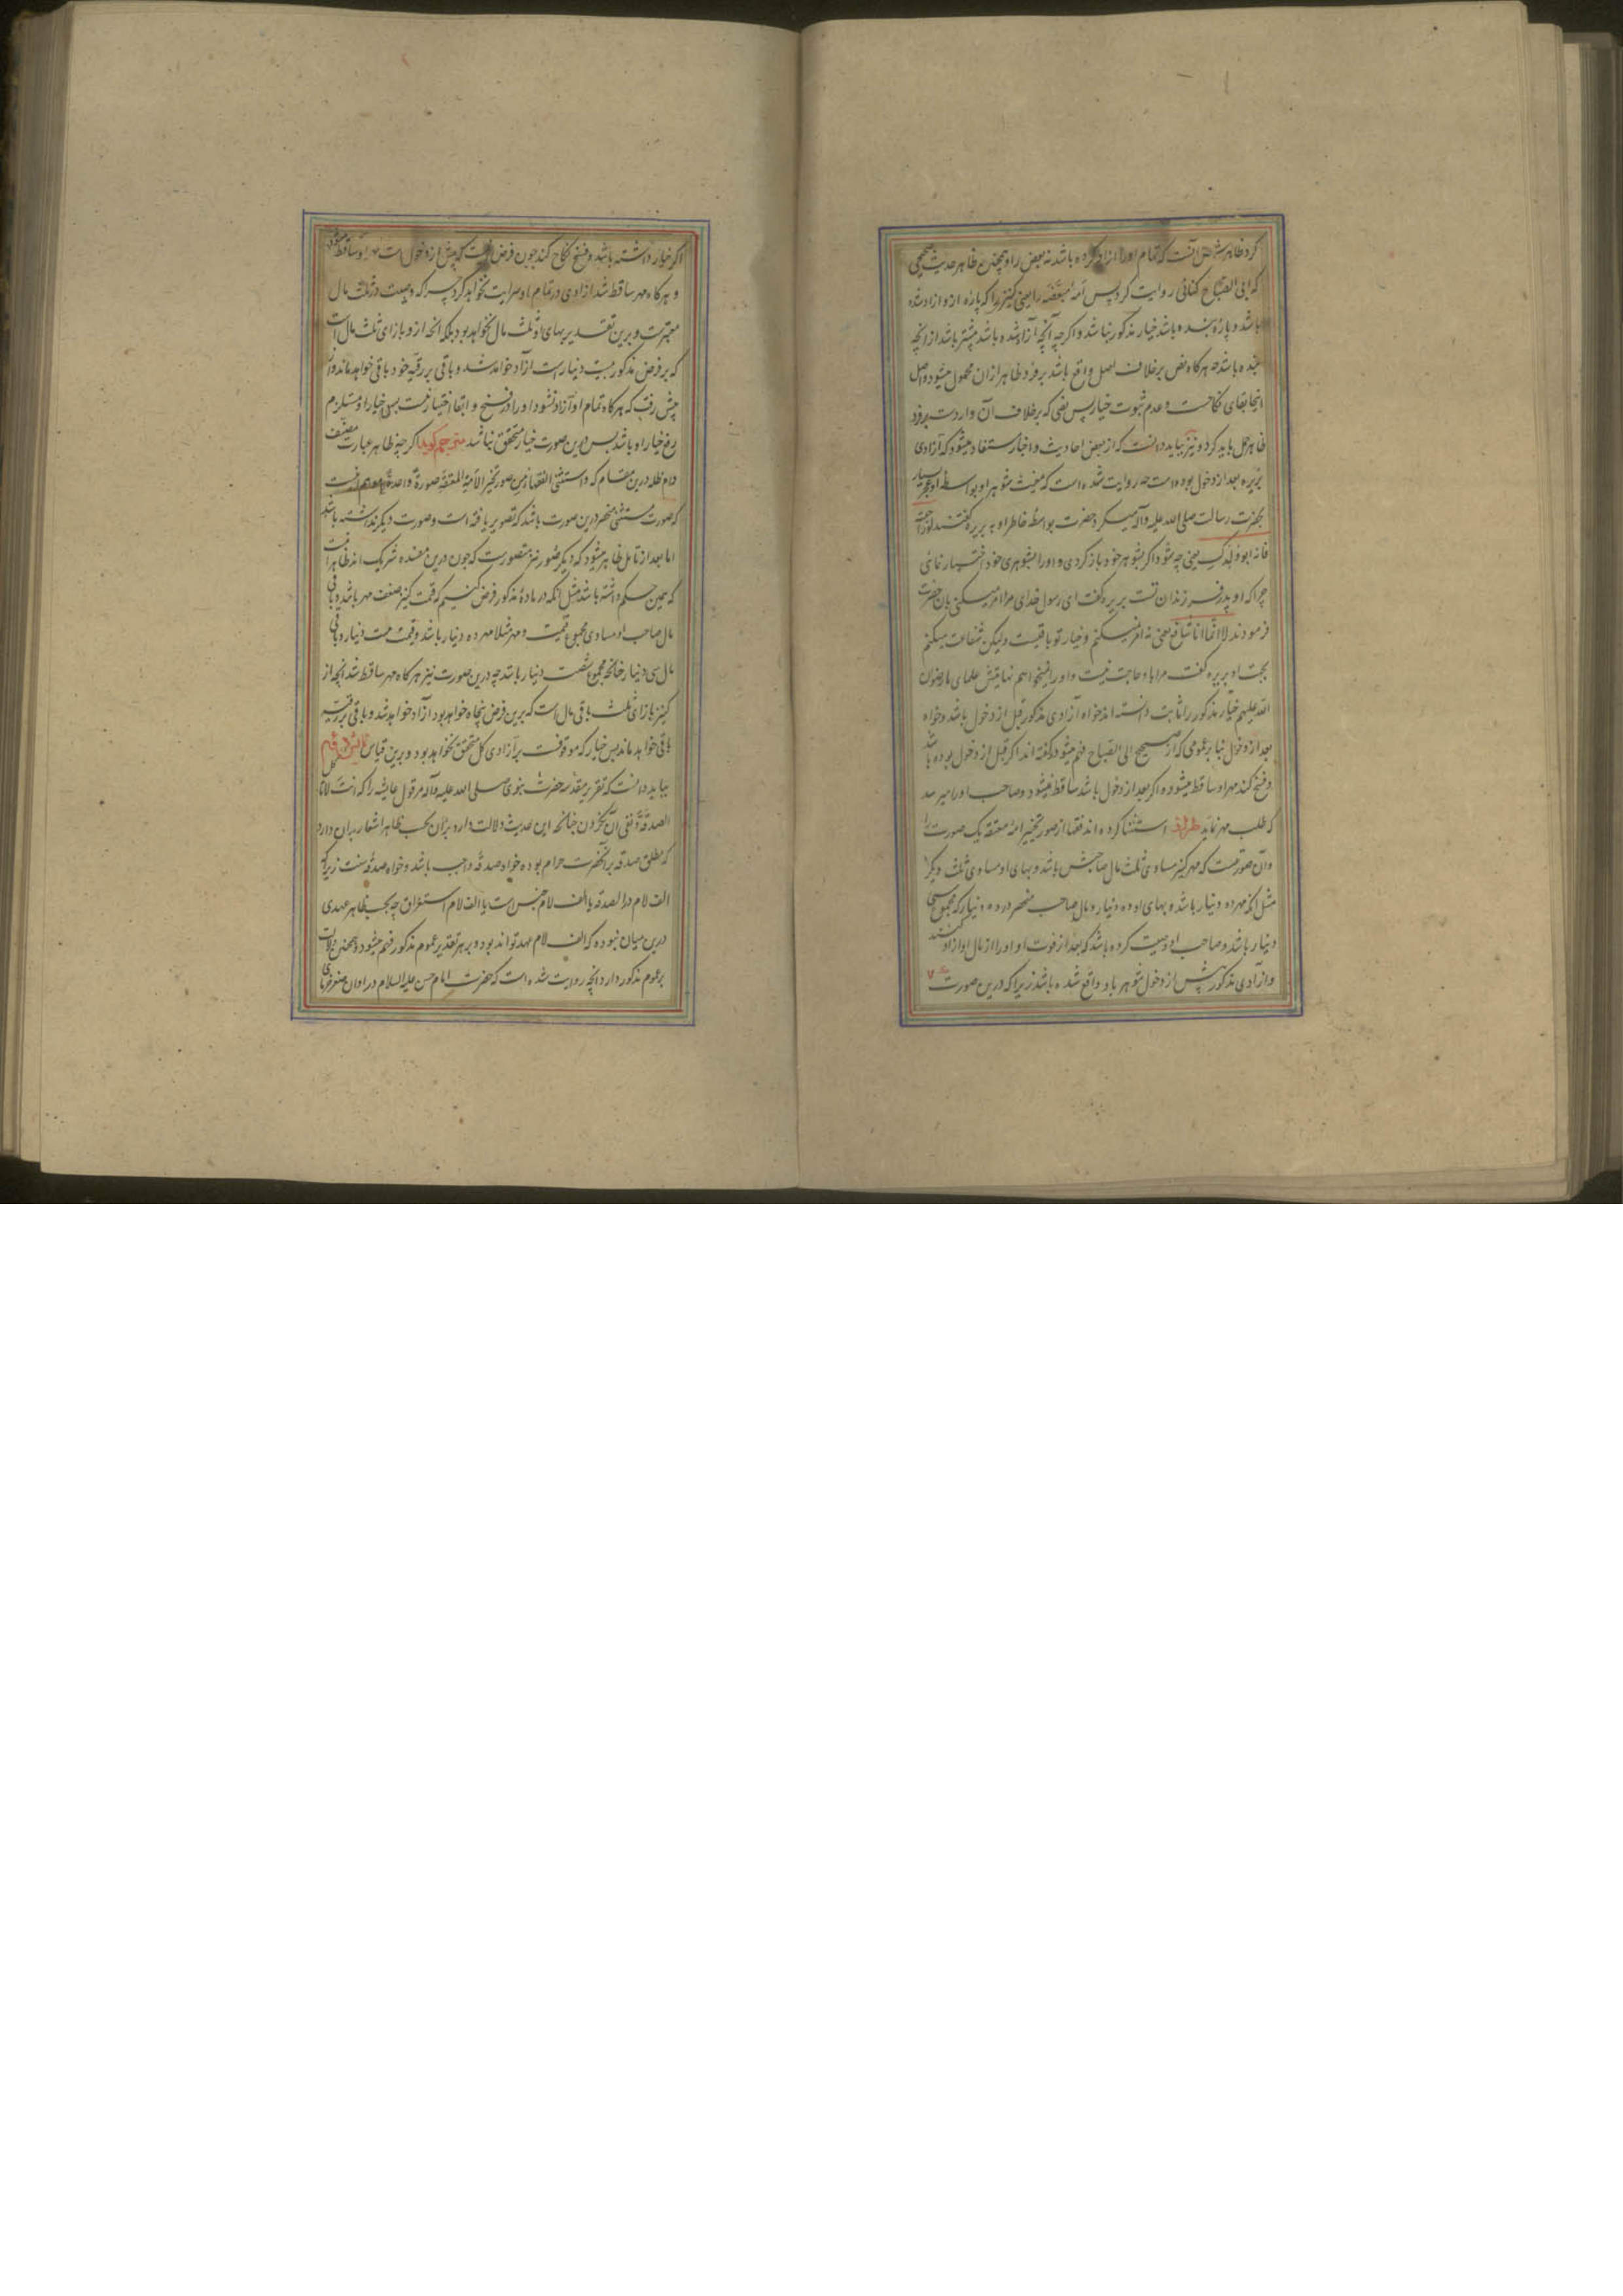 کرد ظاهرش آنست که تمام او را آزاد کرده باشد نه بعض را و همچنین ظاهر حدیث صحیحی
که ابی الصباح کنانی روایت کرد پس امه مبعضه را یعنی کنیز را که پارهٔ ازو آزاد شده
باشد و پارهٔ بنده باشد خیار مذکور نباشد و اگرچه آنچه آزاد شده باشد بیشتر باشد از آنچه
بنده باشد چه هرگاه نص برخلاف اصل واقع باشد بر فرد ظاهر ازان محمول میشود و اصل
اینجا بقای نکاحست و عدم ثبوت خیار پس نصی که برخلاف آن واردست بر فرد
ظاهر حمل باید کرد و نیز بباید دانست که از بعض احادیث و اخبار مستفاد میشود که آزادی
بریره بعد از دخول بوده است چه روایت شده است که مغیث شوهر او بواسطه او جزع بسیار
بحضرت رسالت صلی الله علیه وآله میکرد حضرت بواسطهٔ خاطر او به بریره گفتند لو راجعته
فانه ابو ولدک یعنی چه شود اگر بشوهر خود بازگردی و او را بشوهری خود اختیار نمائی
چرا که او پدر فرزندان تست بریره گفت ای رسول خدای مرا امر میکنی بان حضرت
فرمودند لا انما انا شافع یعنی نه امر نمیکنم و خیار تو باقیست ولیکن شفاعت میکنم
بجهت او بریره گفت مرا باو حاجت نیست و او را نمیخواهم نهایتش علمای ما رضوان
الله علیهم خیار مذکور را ثابت دانسته اند خواه آزادی مذکور قبل از دخول باشد و خواه
بعد از دخول بنا بر عمومی که از صحیح ابی الصباح فهم میشود و گفته اند اگر قبل از دخول بوده باشد
و فسخ کند مهر او ساقط میشود و اگر بعد از دخول باشد ساقط نمیشود و صاحب او را میرسد
که طلب مهر نماید استثنا کرده اند فقها از صور تخییر امهٔ معتقه یک صورت را
و آن صورتیست که مهر کنیز مساوی ثلث مال صاحبش باشد و بهای او مساوی ثلث دیگر
مثل آنکه مهر ده دینار باشد و بهای او ده دینار و مال صاحب منحصر در ده دینار که مجموع سی
دینار باشد و صاحب او وصیت کرده باشد که بعد از فوت او او را از مال او آزاد کنند
و آزادی مذکور پیش از دخول شوهر باو واقع شده باشد زیرا که درین صورت
اگر خیار داشته باشد و فسخ نکاح کند چون فرض اینست که پیش از دخولست مهر او ساقط میشود
و هرگاه مهر ساقط شد آزادی در تمام او سرایت نخواهد کرد چراکه وصیت در ثلث مال
معتبرست و برین تقدیر بهای او ثلث مال نخواهد بود بلکه آنچه ازو بازای ثلث مال است
که بر فرض مذکور بیست دینارست آزاد خواهد شد و باقی بر رقیه خود باقی خواهد ماند و از
پیش رفت که هرگاه تمام او آزاد نشود او را در فسخ و ابقا اختیار نیست پس خیار او مستلزم
رفع خیار او باشد پس درین صورت خیار متحقق نباشد مترجم گوید اگرچه ظاهر عبارت مصنف
دام ظله درین مقام که واستثنی الفقهاء من صور تخییر الامة المعتقة صورة واحدة
که صورت مستثنی منحصر درین صورت باشد که تصویر یافته است و صورت دیگر نداشته باشد
اما بعد از تامل ظاهر میشود که دیگر صور نیز متصورست که چون درین مفسده شریک اند ظاهر آنست
که همین حکم داشته باشند مثل آنکه در مادهٔ مذکور فرض کنیم که قیمت کنیز ضعف مهر باشد و باقی
مال صاحب او مساوی مجموع قیمت و مهر مثلا مهر ده دینار باشد و قیمت بیست دینار و باقی
مال سی دینار چنانچه مجموع شصت دینار باشد چه درین صورت نیز هرگاه مهر ساقط شد آنچه از
کنیز بازای ثلث باقی مال است که برین فرض پنجاه خواهد بود آزاد خواهد شد و باقی بر رقیه
باقی خواهد ماند پس خیار که موقوفست بر آزادی کل متحقق نخواهد بود و برین قیاس
بباید دانست که تقریر مقدسهٔ حضرت نبوی صلی الله علیه وآله مر قول عایشه را که انت لا تاکل
الصدقة و نفی آن نکردن چنانچه این حدیث دلالت دارد بر آن بحسب ظاهر اشعار بدان دارد
که مطلق صدقه بر آنحضرت حرام بوده خواه صدقهٔ واجب باشد و خواه صدقهٔ سنت زیرا که
الف لام در الصدقه یا الف لام جنس است یا الف لام استغراق چه بحسب ظاهر عهدی
درین میان نبوده که الف لام عهد تواند بود و بر هر تقدیر عموم مذکور فهم میشود و همچنین دلالت
بر عموم مذکور دارد آنچه روایت شده است که حضرت امام حسن علیه السلام در اوان صغر خرمای